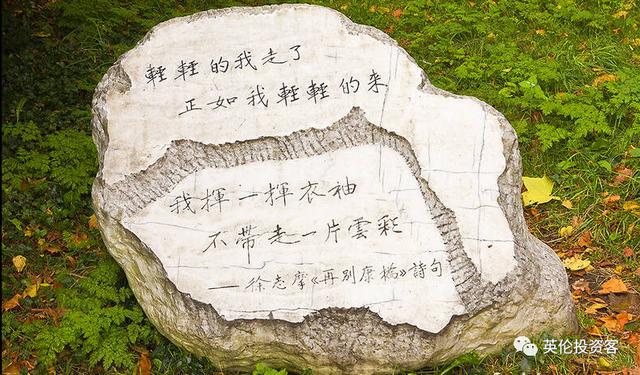 輕輕的我走了
正如我輕輕的来
我揮一揮衣袖
不帶走一片雲彩
——徐志摩《再别康橋》詩句
英伦投资客